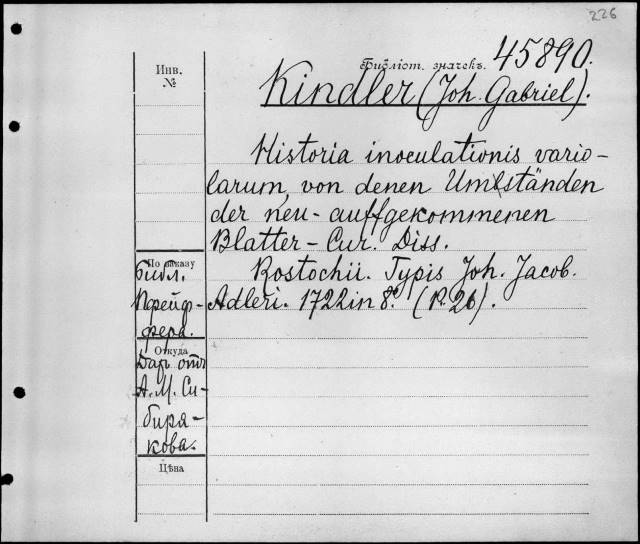 226
Инв.
№
Библіот. значекъ. 45890.
Kindler (Joh. Gabriel).
Historia inoculationis vario-
larum, von denen Umbständen
der neu-auffgekommenen
Blatter-Cur. Diss.
Rostochii. Typis Joh. Jacob.
Adleri. 1722 in 8º. (R. 26).
По заказу
Библ.
Пфейф-
фера.
Откуда
Даръ отъ
А. М. Си-
биря-
кова.
Цѣна